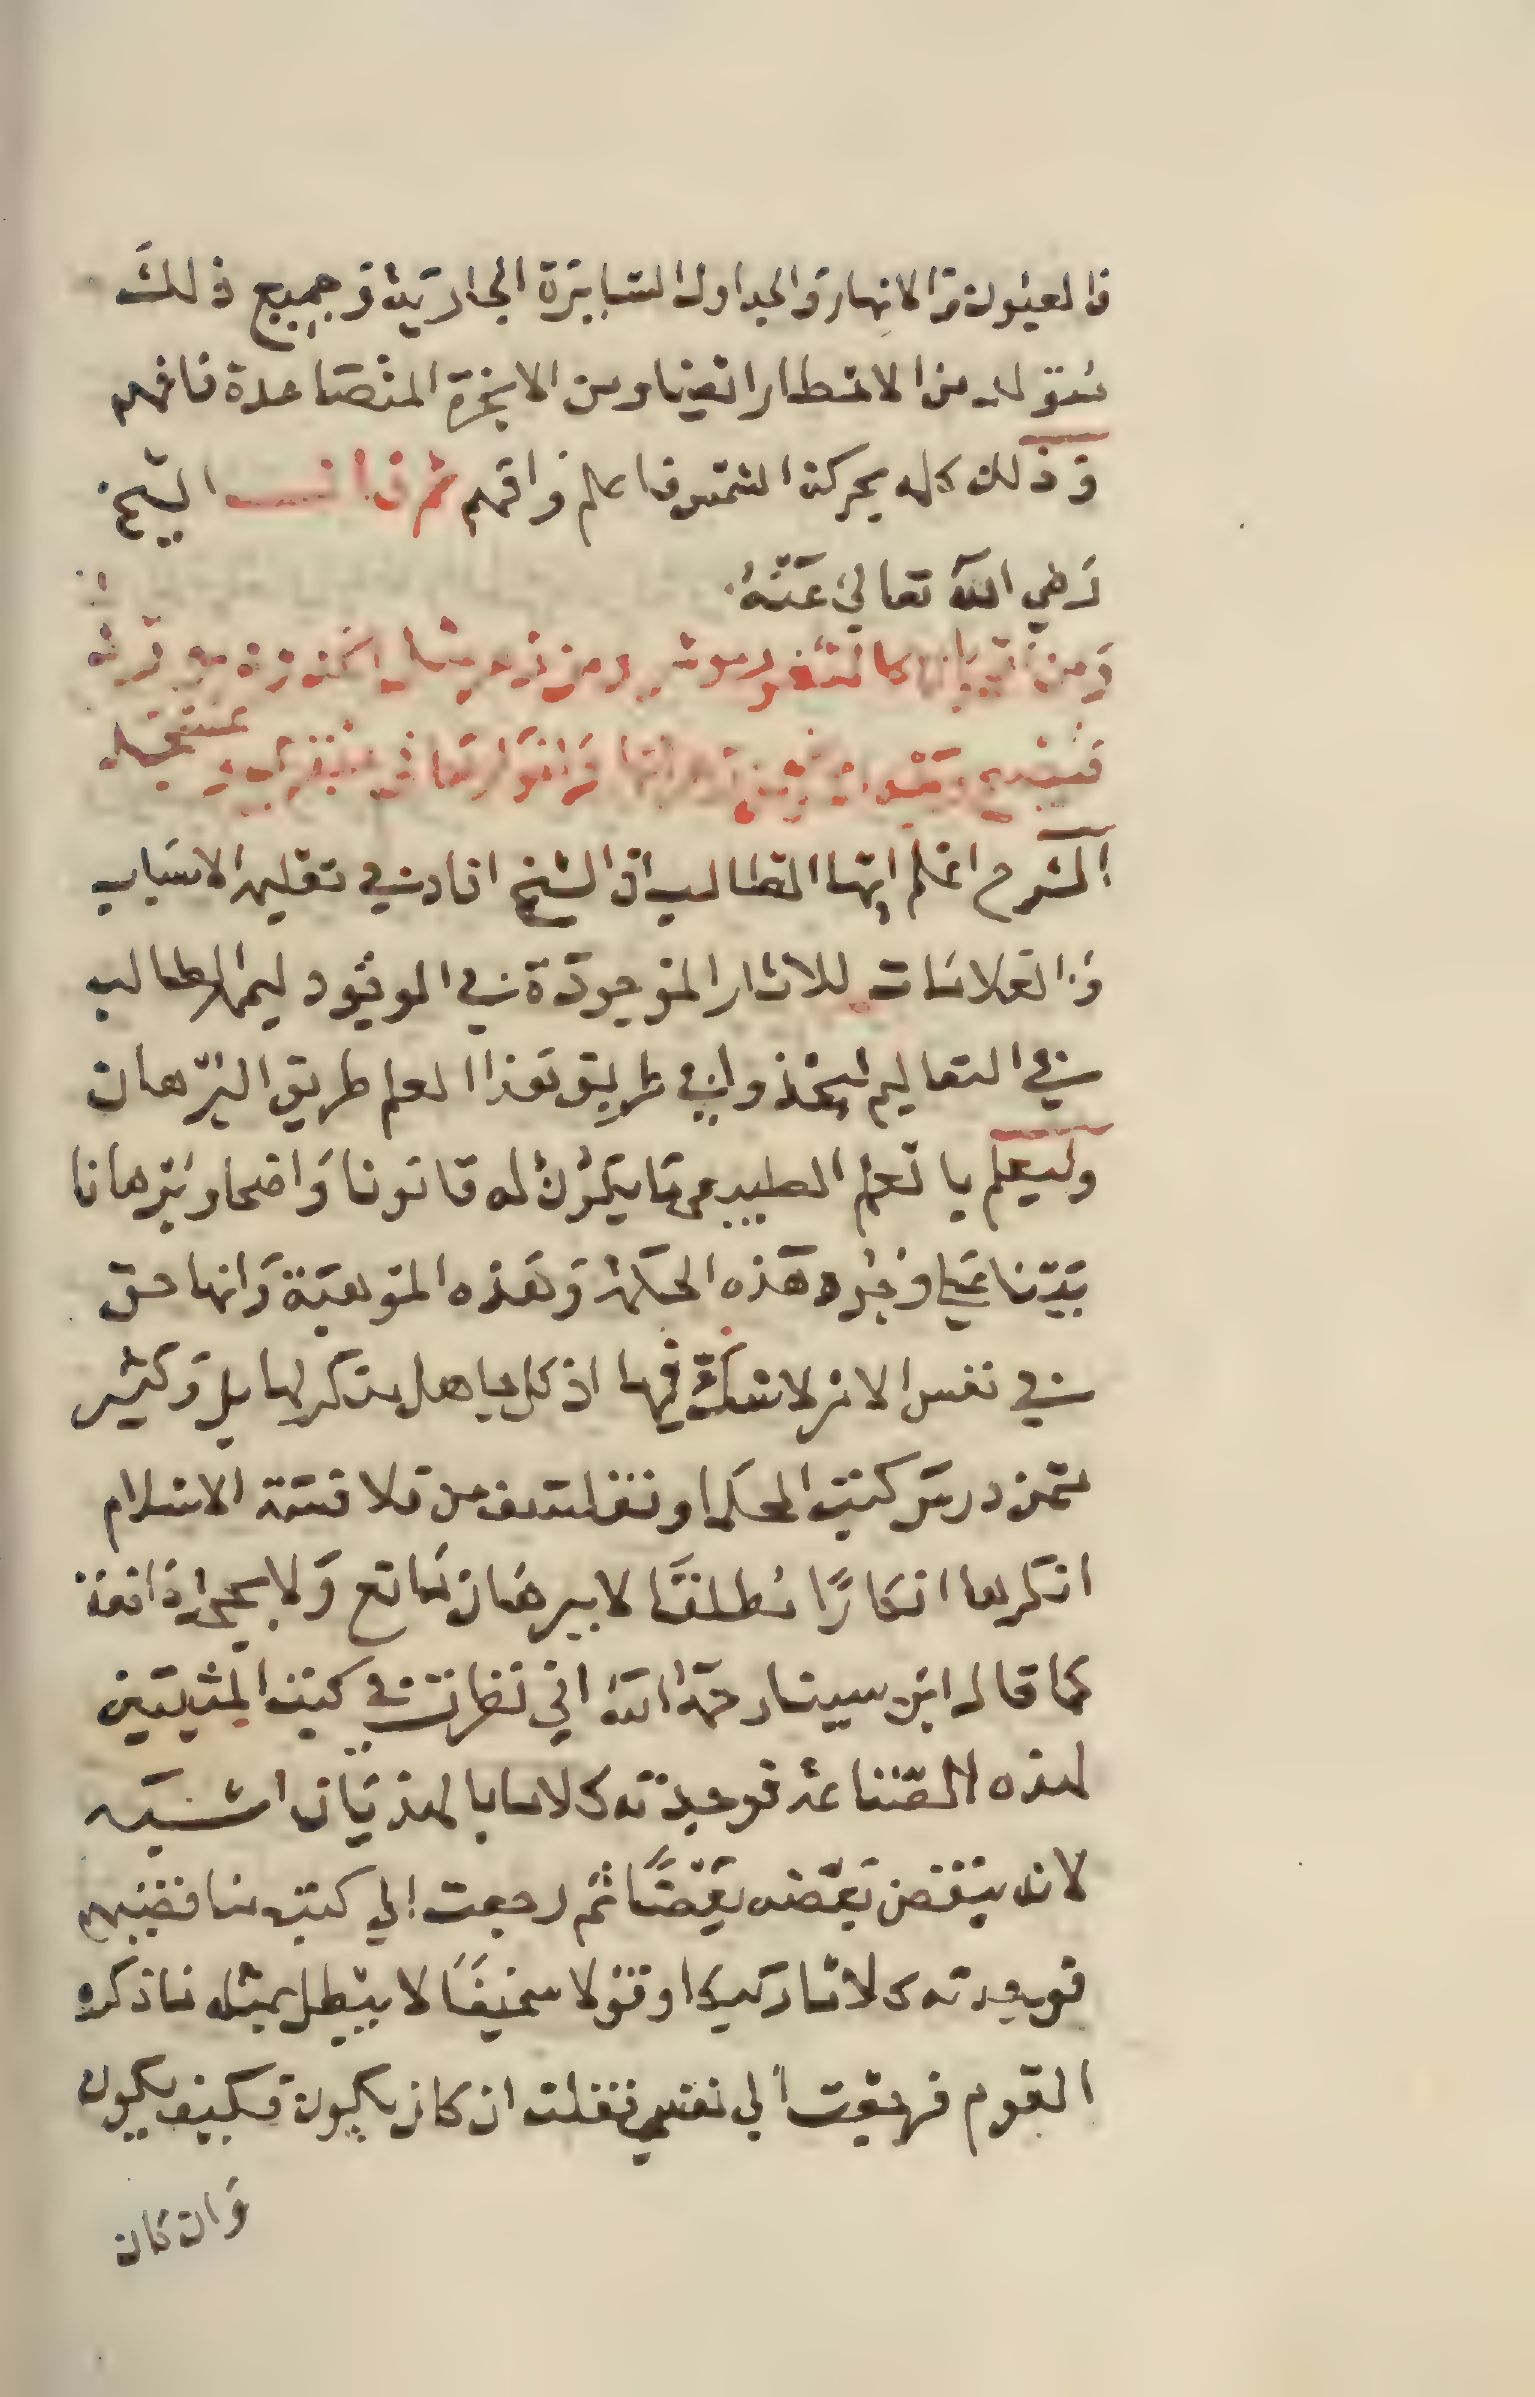 والعيون والانهار والجداول السايرة الجارية وجميع ذلك
متولد من الامطار ايضا ومن الابخرة المتصاعدة فافهم
وذلك كله بحركة الشمس فاعلم وافهم ثم قال الشيخ
رضي الله تعالى عنه
ومن
الشرح اعلم ايها الطالب ان الشيخ افاد في تعليم الاسباب
والعلامات للاثار الموجودة في الوجود ليمهر الطالب
في التعاليم ليحذو في طريق هذا العلم طريق البرهان
وليعلم يا تعلم الطبيعي ما يكون له قانونا واضحا وبرهانا
بينا على وجوه هذه الحكمة وهذه الموهبة وانها حق
في نفس الامر لا شك فيها اذ كل جاهل منكر لها بل وكثير
ممن درس كتب الحكما وتفلسف من فلاسفة الاسلام
انكرها انكارا مطلقا لا ببرهان مانع ولا بحجة دافعة
كما قال ابن سينا رحمه الله اني نظرت في كتب المثبتين
لهذه الصناعة فوجدته كلاما بالهذيان اشبه
لانه ينقض بعضه بعضا ثم رجعت الي كتب مناقضيهم
فوجدته كلاما ركيكا وقولا سخيفا لا يبطل بمثله ما ذكره
القوم فرجعت الي نفسي فقلت ان كان يكون فكيف يكون
وان كان